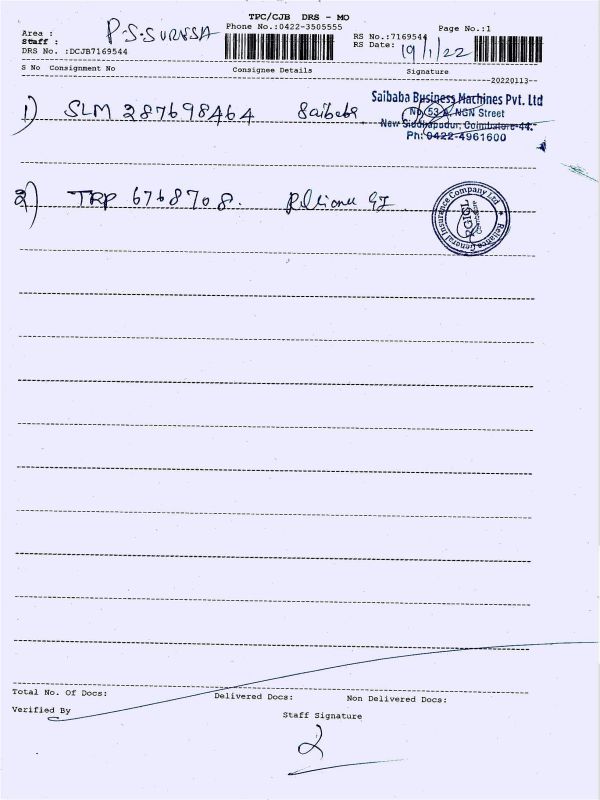 TPC/CJB DRS - MO
Area :
P.S.SURESSA
Phone No.:0422-3505555
Page No.:1
Staff :
RS No.:7169544
DRS No. :DCJB7169544
RS Date:
19/1/22
S No Consignment No
Consignee Details
Signature
--20220113--
1) SLM 287698464 Saibaba
Saibaba Business Machines Pvt. Ltd
No. 53-A, NGN Street
New Siddhapudur, Coimbatore-44.
Ph: 0422-4961600
2) TRP 6768708. Reliance GI
Reliance General Insurance Company Ltd
RGICL
Coimbatore
Total No. Of Docs:
Delivered Docs:
Non Delivered Docs:
Verified By
Staff Signature
2